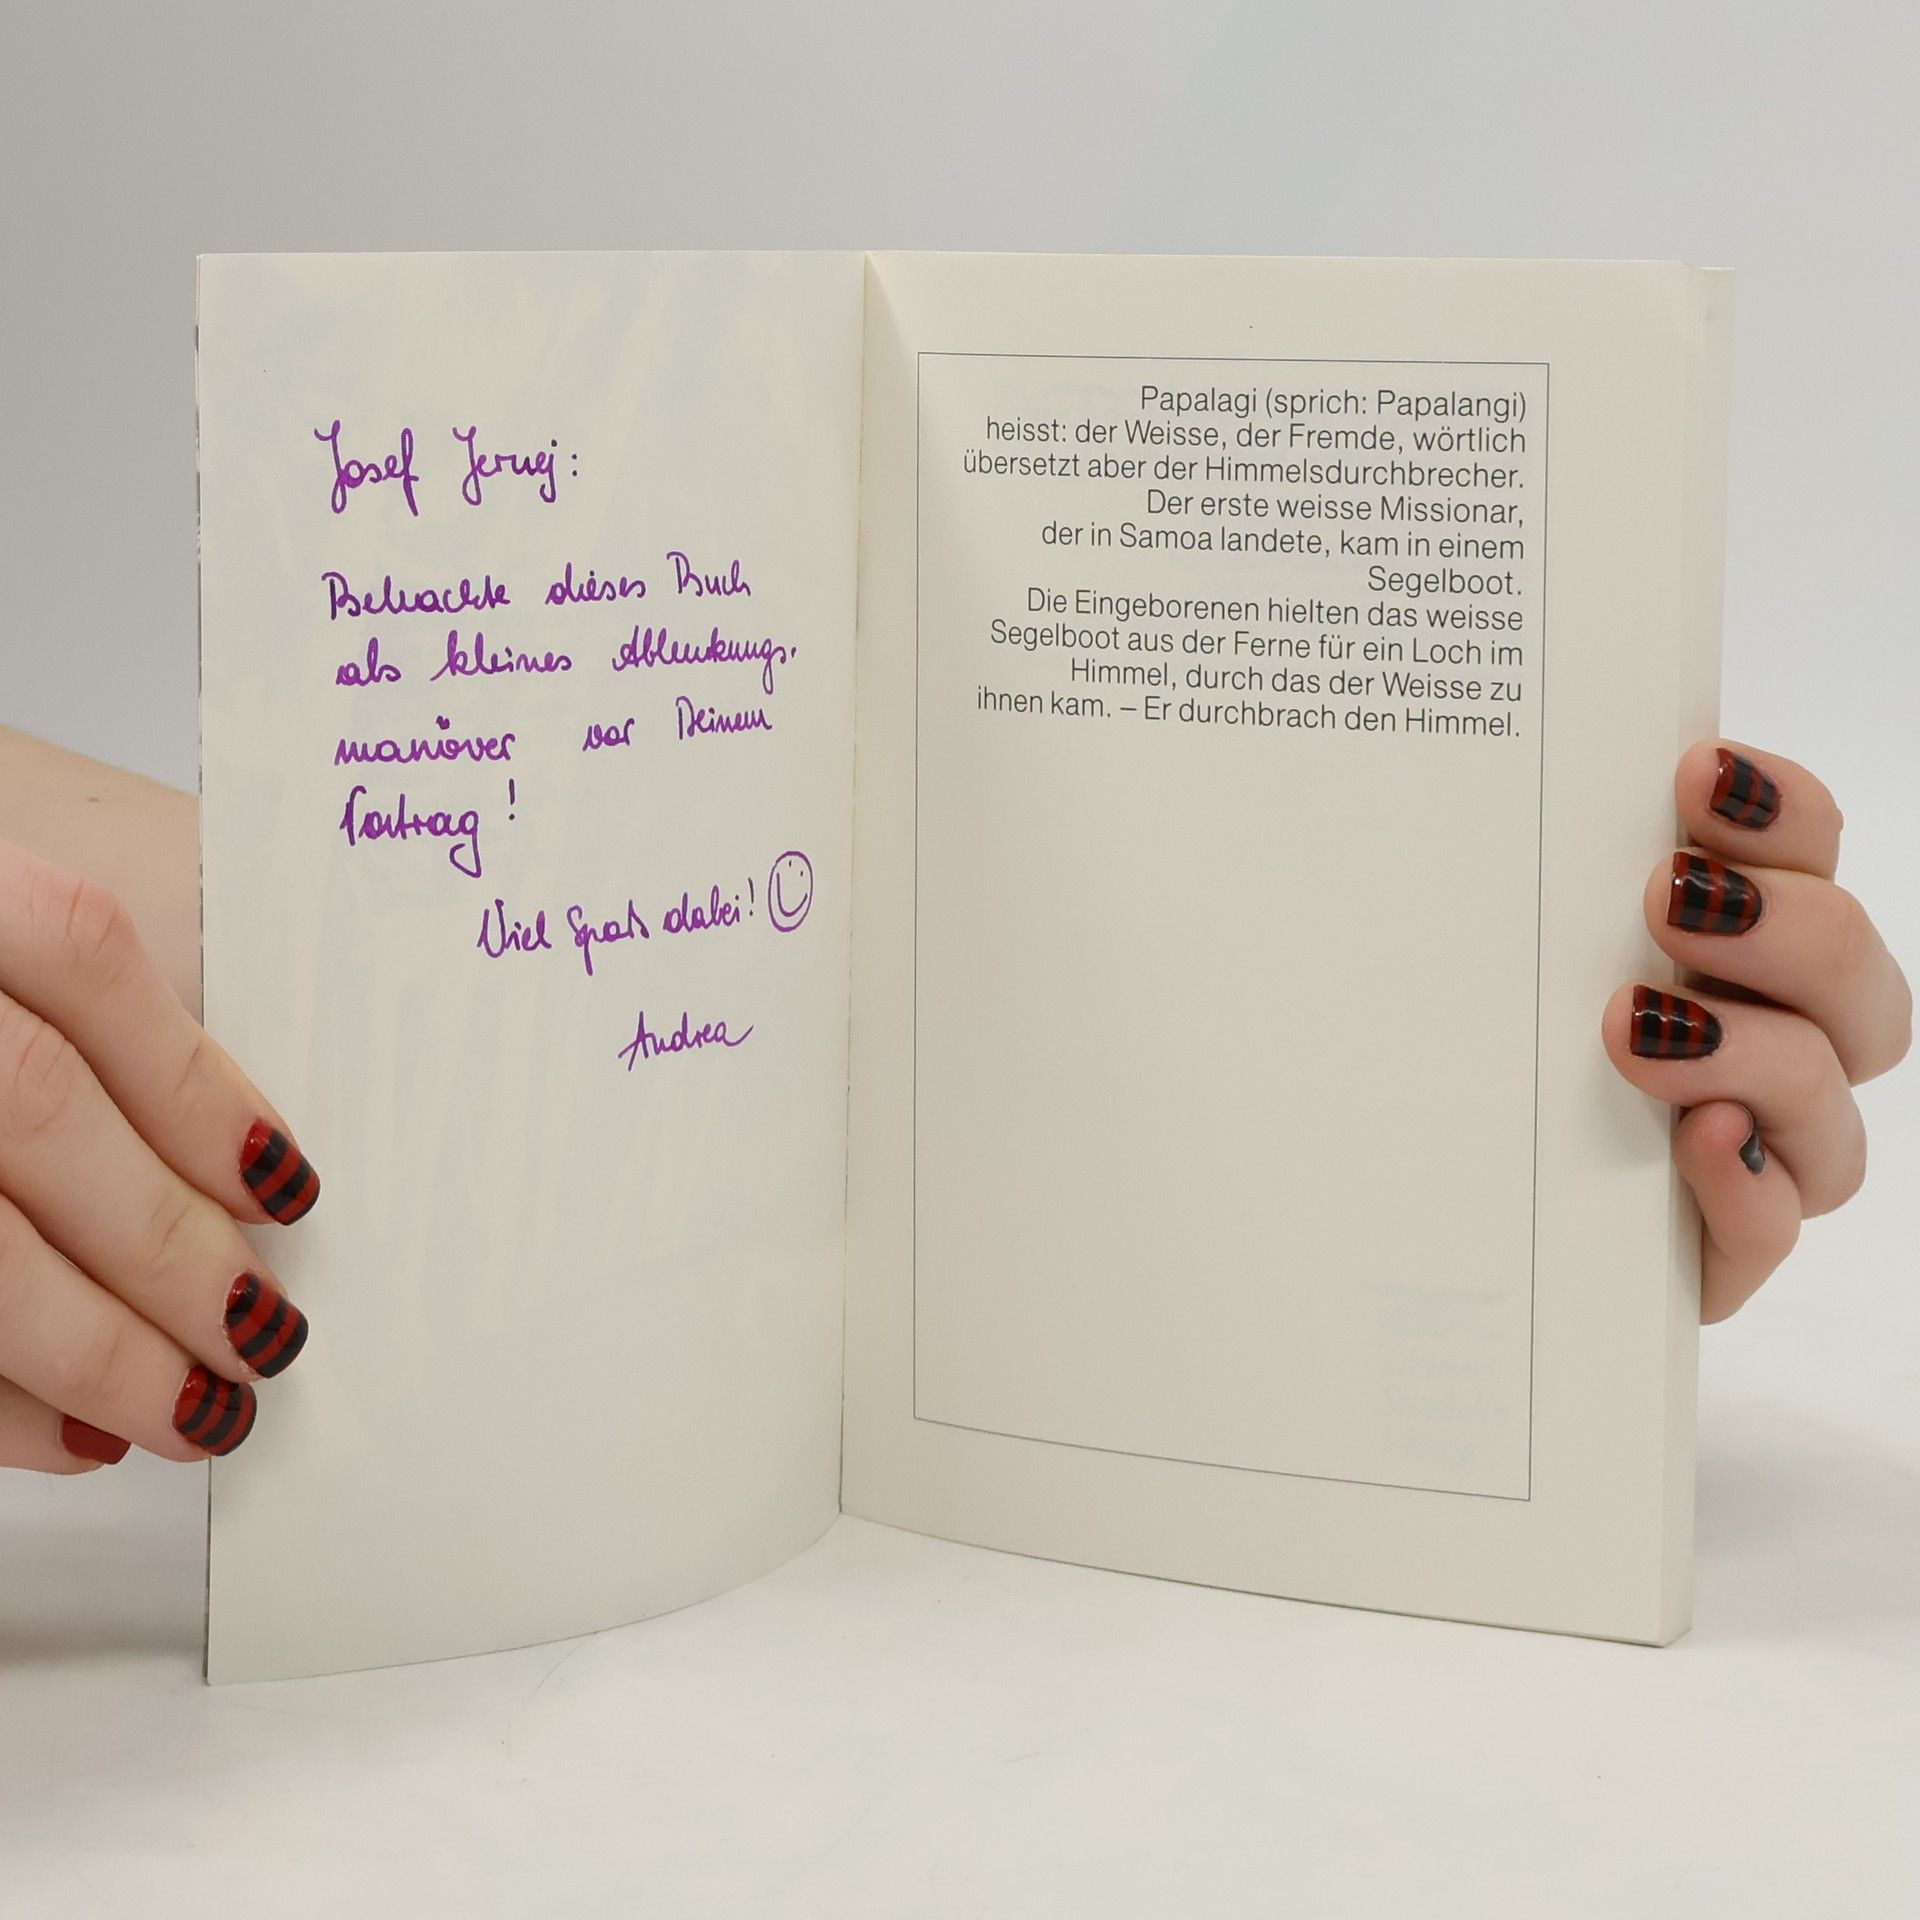 Josef Jernej:
Betrachte dieses Buch
als kleines Ablenkungs-
manöver vor Deinem
Vortrag!
Viel Spaß dabei!
Andrea
Papalagi (sprich: Papalangi)
heisst: der Weisse, der Fremde, wörtlich
übersetzt aber der Himmelsdurchbrecher.
Der erste weisse Missionar,
der in Samoa landete, kam in einem
Segelboot.
Die Eingeborenen hielten das weisse
Segelboot aus der Ferne für ein Loch im
Himmel, durch das der Weisse zu
ihnen kam. – Er durchbrach den Himmel.